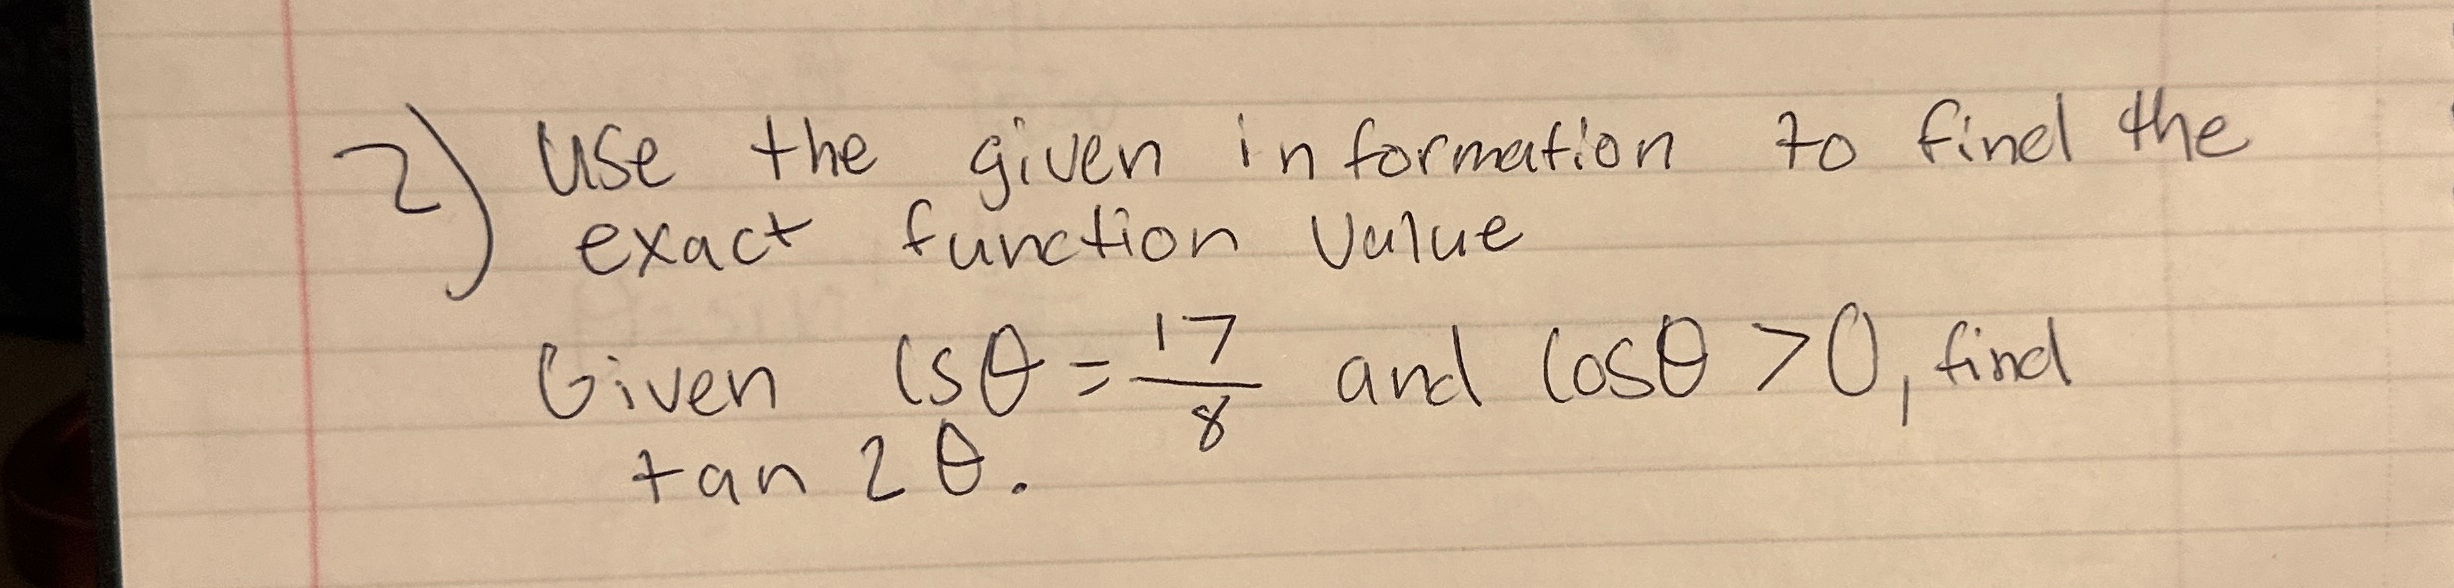 2) Use the given information to find the
exact function value
Given csθ = 17/8 and cosθ > 0, find
tan 2θ.